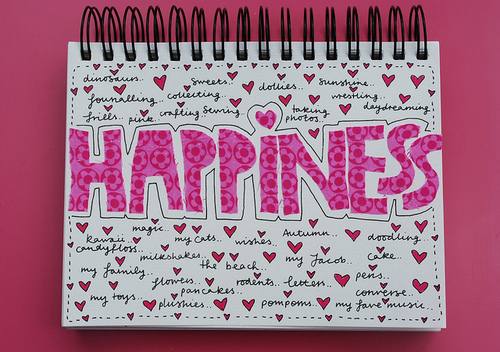 dinosaurs.. sweets.. dollies.. sunshine..
journalling.. collecting.. wrestling..
frills.. pink.. crafting. sewing. taking photos.. daydreaming..
HAPPiNESS
magic.. Autumn.. doodling..
kawaii.. my cats.. wishes..
candyfloss.. milkshakes.. the beach.. my Jacob.. cake..
my family.. flowers.. rodents.. letters.. pens..
my toys.. pancakes.. converse..
plushies.. pompoms.. my fave music...